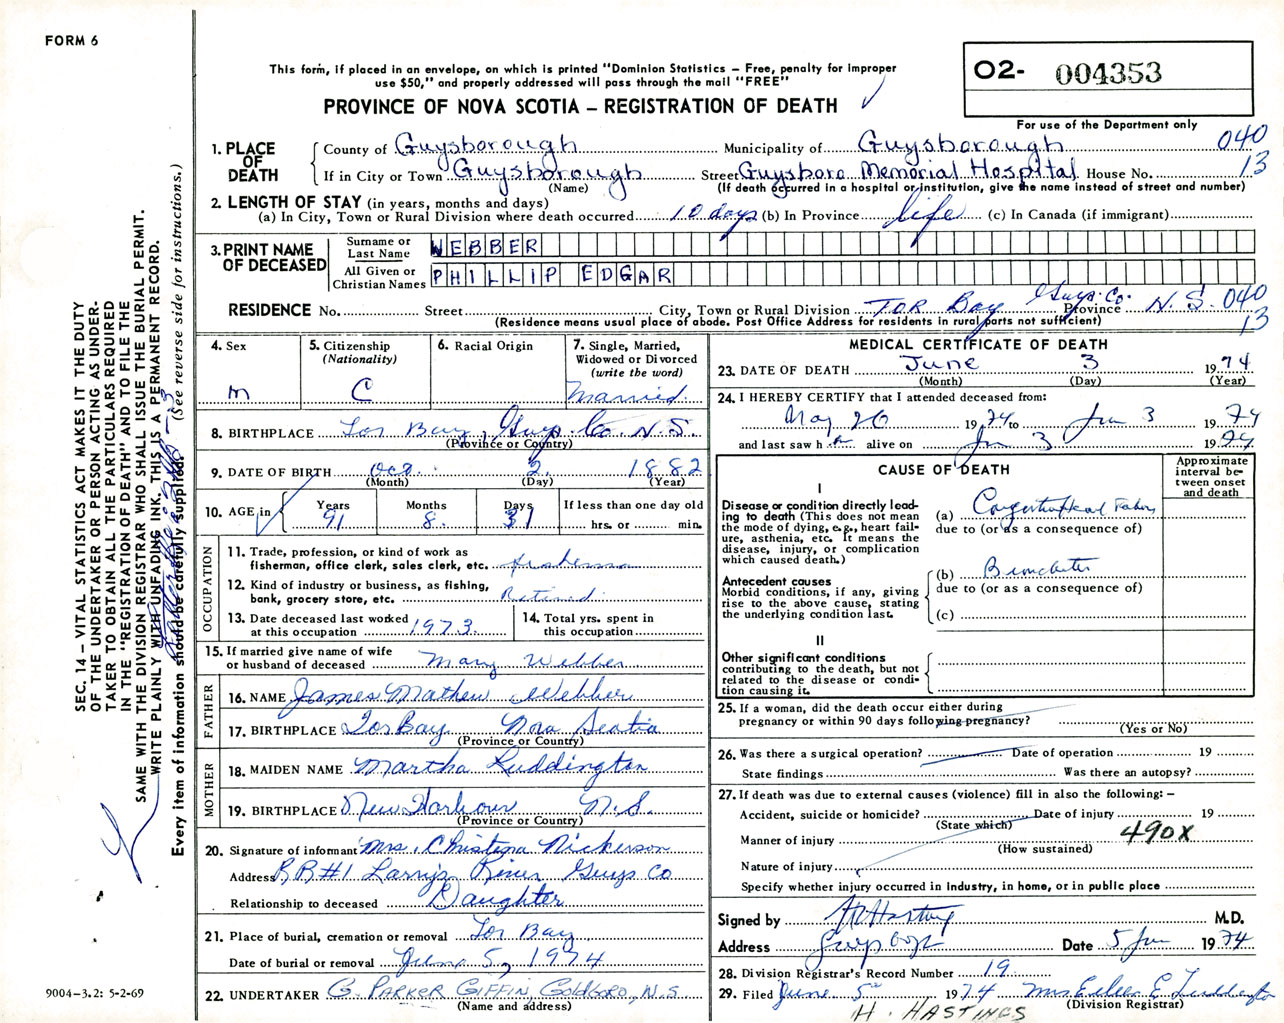 FORM 6
This form, if placed in an envelope, on which is printed "Dominion Statistics – Free, penalty for improper
use $50," and properly addressed will pass through the mail "FREE"
PROVINCE OF NOVA SCOTIA – REGISTRATION OF DEATH
O2- 004353
For use of the Department only
1. PLACE OF DEATH
County of Guysborough Municipality of Guysborough 040
If in City or Town Guysborough Street Guysboro Memorial Hospital House No. 13
(Name) (If death occurred in a hospital or institution, give the name instead of street and number)
2. LENGTH OF STAY (in years, months and days)
(a) In City, Town or Rural Division where death occurred 10 days (b) In Province life (c) In Canada (if immigrant)
3. PRINT NAME OF DECEASED
Surname or Last Name WEBBER
All Given or Christian Names PHILLIP EDGAR
RESIDENCE No. Street City, Town or Rural Division TOR Bay Guys. Co. Province N.S. 040
(Residence means usual place of abode. Post Office Address for residents in rural parts not sufficient) 13
4. Sex
m
5. Citizenship
(Nationality)
C
6. Racial Origin
7. Single, Married,
Widowed or Divorced
(write the word)
Married
8. BIRTHPLACE Tor Bay, Guys. Co. N.S.
(Province or Country)
9. DATE OF BIRTH Oct. 2. 1882
(Month) (Day) (Year)
10. AGE in
Years Months Days If less than one day old
91 8. 31 hrs. or min.
OCCUPATION
11. Trade, profession, or kind of work as
fisherman, office clerk, sales clerk, etc. fisherman
12. Kind of industry or business, as fishing,
bank, grocery store, etc. Retired
13. Date deceased last worked
at this occupation 1973.
14. Total yrs. spent in
this occupation
15. If married give name of wife
or husband of deceased Mary Webber
FATHER
16. NAME James Mathew Webber
17. BIRTHPLACE Tor Bay Nova Scotia
(Province or Country)
MOTHER
18. MAIDEN NAME Martha Luddington
19. BIRTHPLACE New Harbour N.S.
(Province or Country)
20. Signature of informant Mrs. Christena Nickerson
Address RR#1 Larry's River Guys Co
Relationship to deceased Daughter
21. Place of burial, cremation or removal Tor Bay
Date of burial or removal June 5, 1974
22. UNDERTAKER G. PARKER GIFFIN, GOLDBORO, N.S
(Name and address)
MEDICAL CERTIFICATE OF DEATH
23. DATE OF DEATH June 3 1974
(Month) (Day) (Year)
24. I HEREBY CERTIFY that I attended deceased from:
May 26 1974 to Jun 3 1974
and last saw h alive on Jun 3 1974
CAUSE OF DEATH
Approximate
interval be-
tween onset
and death
I
Disease or condition directly lead-
ing to death (This does not mean
the mode of dying, e.g., heart fail-
ure, asthenia, etc. It means the
disease, injury, or complication
which caused death.)
(a) Congestive Heart Failure
due to (or as a consequence of)
Antecedent causes
Morbid conditions, if any, giving
rise to the above cause, stating
the underlying condition last.
(b) Bronchitis
due to (or as a consequence of)
(c)
II
Other significant conditions
contributing to the death, but not
related to the disease or condi-
tion causing it.
25. If a woman, did the death occur either during
pregnancy or within 90 days following pregnancy?
(Yes or No)
26. Was there a surgical operation? Date of operation 19
State findings Was there an autopsy?
27. If death was due to external causes (violence) fill in also the following: –
Accident, suicide or homicide? Date of injury 19
(State which)
Manner of injury 490X
(How sustained)
Nature of injury
Specify whether injury occurred in industry, in home, or in public place
Signed by H Hastings M.D.
Address Date 5 Jun 1974
28. Division Registrar's Record Number 19
29. Filed June 5 1974 Mrs Eileen E Luddington
(Division Registrar)
H. HASTINGS
SEC. 14 – VITAL STATISTICS ACT MAKES IT THE DUTY
OF THE UNDERTAKER OR PERSON ACTING AS UNDER-
TAKER TO OBTAIN ALL THE PARTICULARS REQUIRED
IN THE "REGISTRATION OF DEATH" AND TO FILE THE
SAME WITH THE DIVISION REGISTRAR WHO SHALL ISSUE THE BURIAL PERMIT.
WRITE PLAINLY WITH UNFADING INK, THIS IS A PERMANENT RECORD.
Every item of information should be carefully supplied. (See reverse side for instructions.)
9004-3.2: 5-2-69